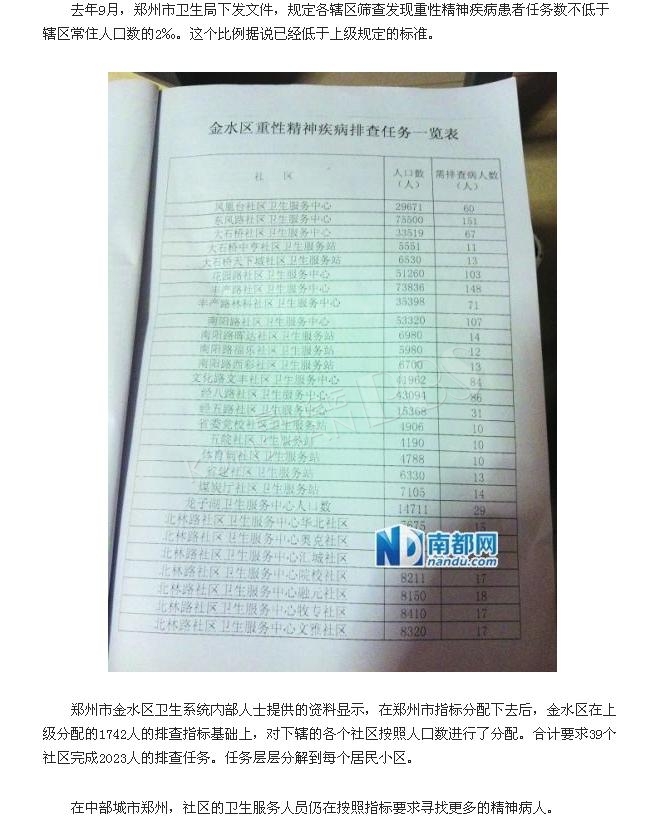 去年9月，郑州市卫生局下发文件，规定各辖区筛查发现重性精神疾病患者任务数不低于
辖区常住人口数的2‰。这个比例据说已经低于上级规定的标准。
金水区重性精神疾病排查任务一览表
社 区 人口数（人） 需排查病人数（人）
凤凰台社区卫生服务中心 29671 60
东风路社区卫生服务中心 75500 151
大石桥社区卫生服务中心 33519 67
大石桥中亨社区卫生服务站 5551 11
大石桥天下城社区卫生服务站 6530 13
花园路社区卫生服务中心 51260 103
丰产路社区卫生服务中心 73836 148
丰产路林科社区卫生服务中心 35398 71
南阳路社区卫生服务中心 53320 107
南阳路晖达社区卫生服务站 6980 14
南阳路福乐社区卫生服务站 5980 12
南阳路西彩社区卫生服务站 6700 13
文化路文丰社区卫生服务中心 41962 84
经八路社区卫生服务中心 43094 86
经五路社区卫生服务中心 15368 31
省委党校社区卫生服务站 4906 10
五院社区卫生服务站 4190 10
体育馆社区卫生服务站 4788 10
省建社区卫生服务站 6330 13
煤炭厅社区卫生服务站 7105 14
龙子湖卫生服务中心人口数 14711 29
北林路社区卫生服务中心华北社区 7675 15
北林路社区卫生服务中心奥克社区
北林路社区卫生服务中心汇城社区
北林路社区卫生服务中心院校社区 8211 17
北林路社区卫生服务中心融元社区 8150 18
北林路社区卫生服务中心牧专社区 8410 17
北林路社区卫生服务中心文雅社区 8320 17
南都网
nandu.com
郑州市金水区卫生系统内部人士提供的资料显示，在郑州市指标分配下去后，金水区在上
级分配的1742人的排查指标基础上，对下辖的各个社区按照人口数进行了分配。合计要求39个
社区完成2023人的排查任务。任务层层分解到每个居民小区。
在中部城市郑州，社区的卫生服务人员仍在按照指标要求寻找更多的精神病人。